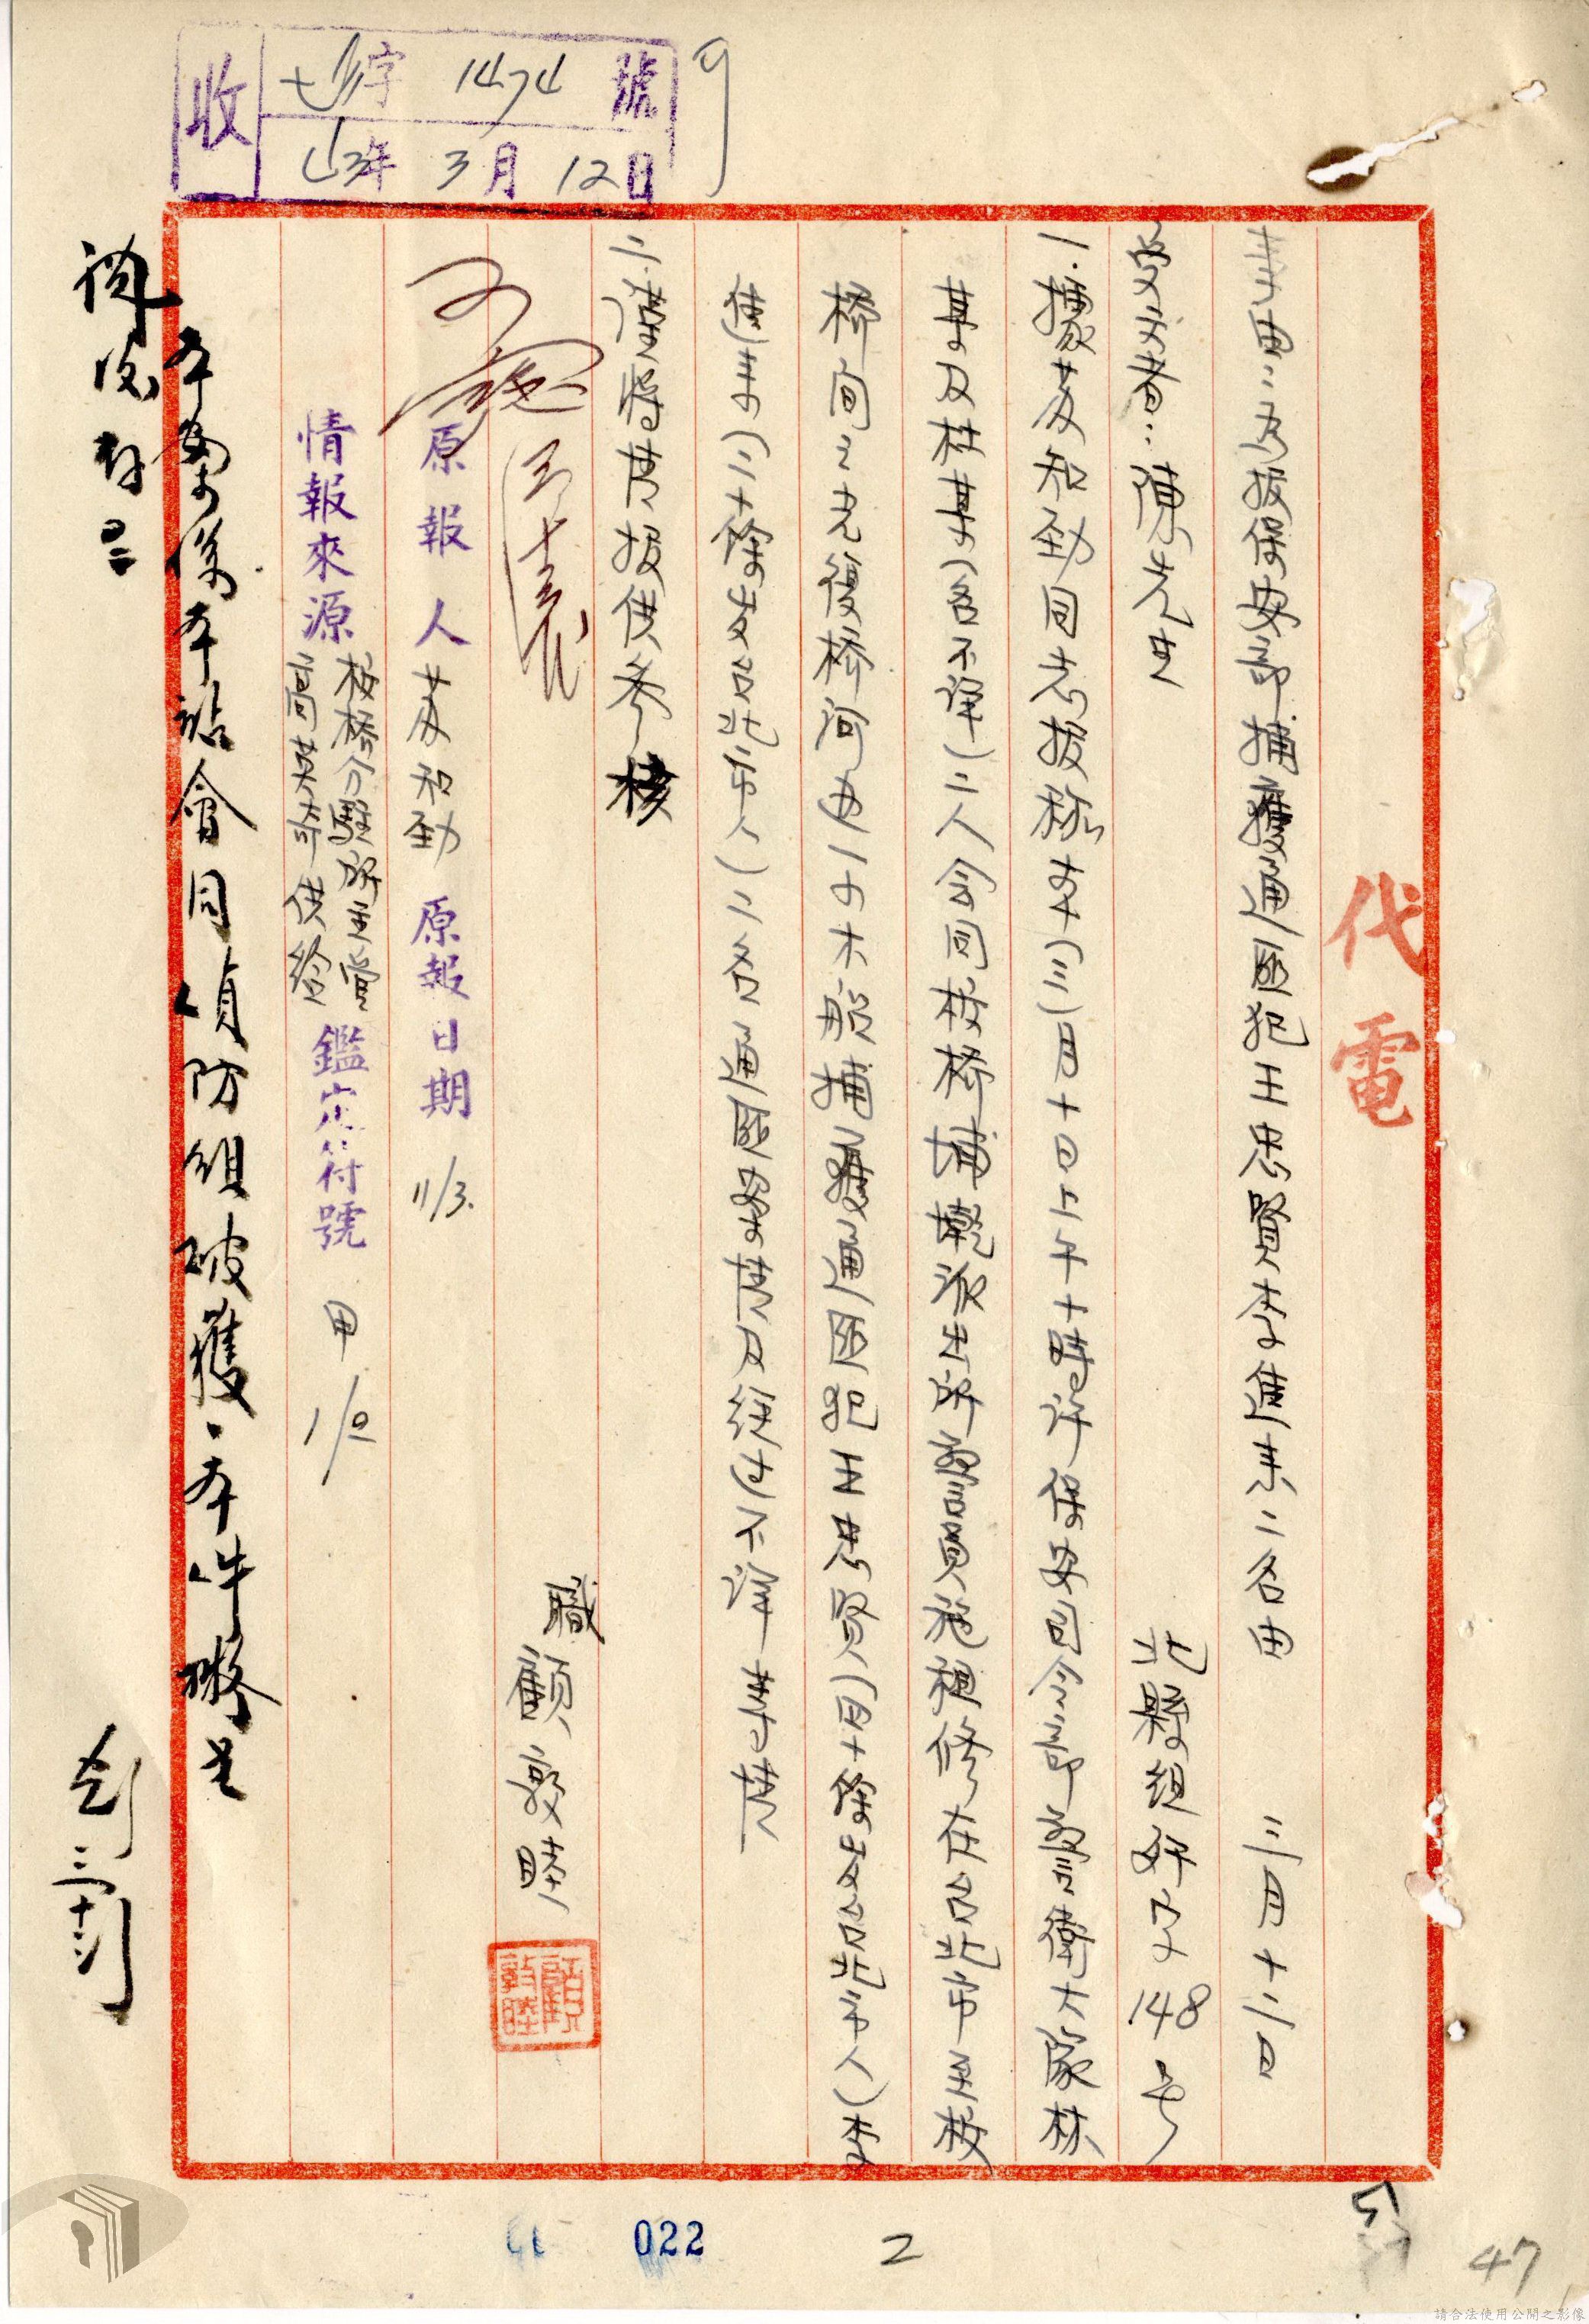 收
字 1474 號
43年 3月 12日
代電
事由：為據保安部捕獲通匪犯王忠賢李進來二名由 三月十二日
受文者：陳先生 北縣組 字148号
一、據黃和勁同志報称：本(三)月十日上午十時許保安司令部警衛大隊林
某及林某(名不詳)二人会同板橋埔墘派出所警員 修在台北市至板
橋间之光復橋 一 木船捕獲通匪犯王忠賢(四十餘歲台北市人)李
進來(二十餘歲台北市人)二名通匪案情及經过不詳等情
二、謹將情報供參核
職 顧敦睦
顧敦睦
原報人 黃和勁 原報日期 11/3.
情報來源 板橋分駐所主管 供給 鑑定符號 甲 1/2
本案係本站會同偵防組破獲、本件擬
022
2
47
請合法使用公開之影像